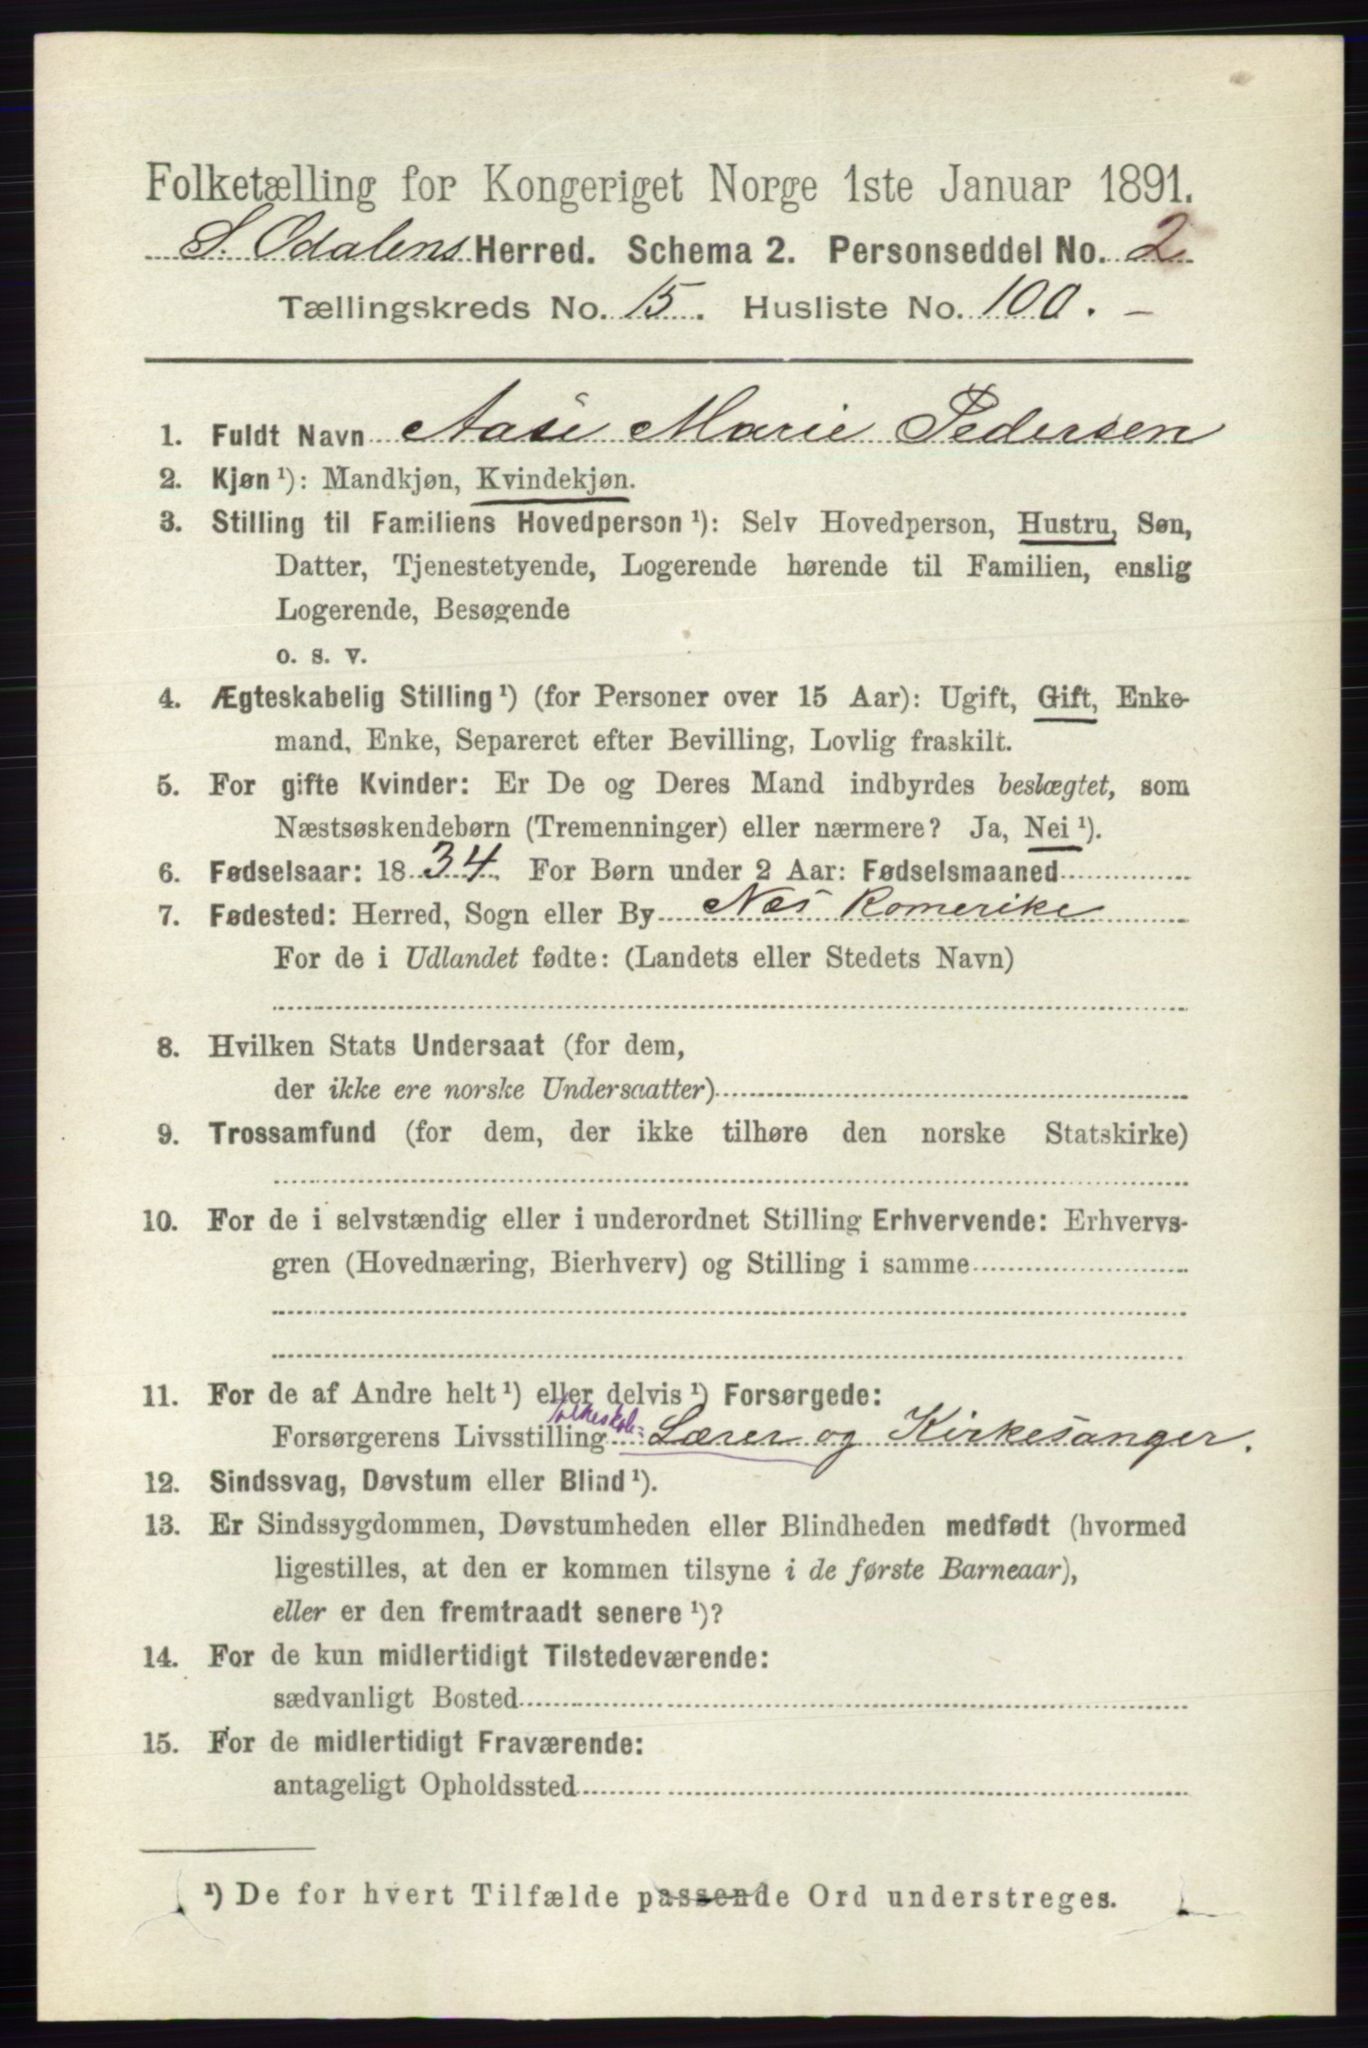 Folketælling for Kongeriget Norge 1ste Januar 1891.
S. Odalens Herred. Schema 2. Personseddel No. 2
Tællingskreds No. 15. Husliste No. 100. –
1. Fuldt Navn Aase Marie Pedersen
2. Kjøn ¹): Mandkjøn, Kvindekjøn.
3. Stilling til Familiens Hovedperson ¹): Selv Hovedperson, Hustru, Søn,
Datter, Tjenestetyende, Logerende hørende til Familien, enslig
Logerende, Besøgende
o. s. v.
4. Ægteskabelig Stilling ¹) (for Personer over 15 Aar): Ugift, Gift, Enke-
mand, Enke, Separeret efter Bevilling, Lovlig fraskilt.
5. For gifte Kvinder: Er De og Deres Mand indbyrdes beslægtet, som
Næstsøskendebørn (Tremenninger) eller nærmere? Ja, Nei ¹).
6. Fødselsaar: 1834. For Børn under 2 Aar: Fødselsmaaned
7. Fødested: Herred, Sogn eller By Næs Romerike
For de i Udlandet fødte: (Landets eller Stedets Navn)
8. Hvilken Stats Undersaat (for dem,
der ikke ere norske Undersaatter)
9. Trossamfund (for dem, der ikke tilhøre den norske Statskirke)
10. For de i selvstændig eller i underordnet Stilling Erhvervende: Erhvervs-
gren (Hovednæring, Bierhverv) og Stilling i samme
11. For de af Andre helt ¹) eller delvis ¹) Forsørgede:
Folkeskole-
Forsørgerens Livsstilling Lærer og Kirkesanger.
12. Sindssvag, Døvstum eller Blind ¹).
13. Er Sindssygdommen, Døvstumheden eller Blindheden medfødt (hvormed
ligestilles, at den er kommen tilsyne i de første Barneaar),
eller er den fremtraadt senere ¹)?
14. For de kun midlertidigt Tilstedeværende:
sædvanligt Bosted
15. For de midlertidigt Fraværende:
antageligt Opholdssted
¹) De for hvert Tilfælde passende Ord understreges.